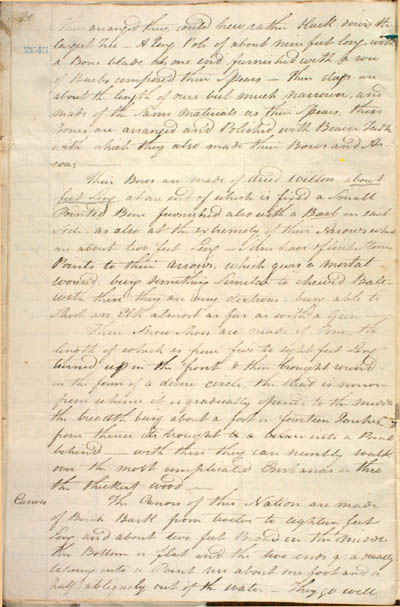 20
2643
thus arranged they could hew, rather hack down the
largest tree – A long Pole of about nine feet long with
a Bone blade at one end furnished with a row
of Barbs composed their Spears – their dags are
about the length of ours but much narrower, and
made of the same materials as their Spears, their
Bones are arranged and Polished with Beaver Teeth
with which they also made their Bows and Ar-
rows
Their Bows are made of dried Willow about
feet Long at one end of which is fixed a Small
Pointed Bone furnished also with a Barb on each
Side as also at the extremety of their Arrows which
are about two feet Long – have flint Stone
Points to their arrows, which gives a mortal
wound, being something similar to chewed Ball
with these they are very dextrous being able to
Shot an Elk almost as far as with a Gun
Their Snow Shoes are made of the
length of which is from five to eight feet Long
turned up in the front & then brought round
in the form of a deme circle, the Head is narrow
from whence it is gradually opened to the middle
the breadth being about a foot or fourteen Inches
from thence its brought to a Point
behind – with these they can nimbly walk
over the most complicated or thro
the thickest wood
Canoes
The Canoes of this Nation are made
of Birch Bark from twelve to eighteen feet
Long and about two feet Broad in the
the Bottom is flat and the two ends gradually
to a Point rise about one foot and a
half obliquely out of the water – They go well